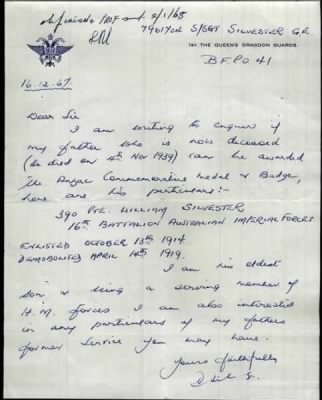 sent 8/1/68
S/SGT SILVESTER G.E.
1ST THE QUEEN'S DRAGOON GUARDS.
B.F.P.O 41
16.12.67.
Dear Sir
I am writing to enquire if
my father who is now deceased
(he died on 4th Nov 1939) can be awarded
the Anzac Commemorative Medal & Badge,
here are his particulars:-
390 Pte. WILLIAM SILVESTER,
16th BATTALION AUSTRALIAN IMPERIAL FORCES
ENLISTED OCTOBER 13th 1914
DEMOBOLISED APRIL 14th 1919.
I am his eldest
son & being a serving member of
H.M. Forces I am also interested
in any particulars of my fathers
former service you may have.
Yours faithfully